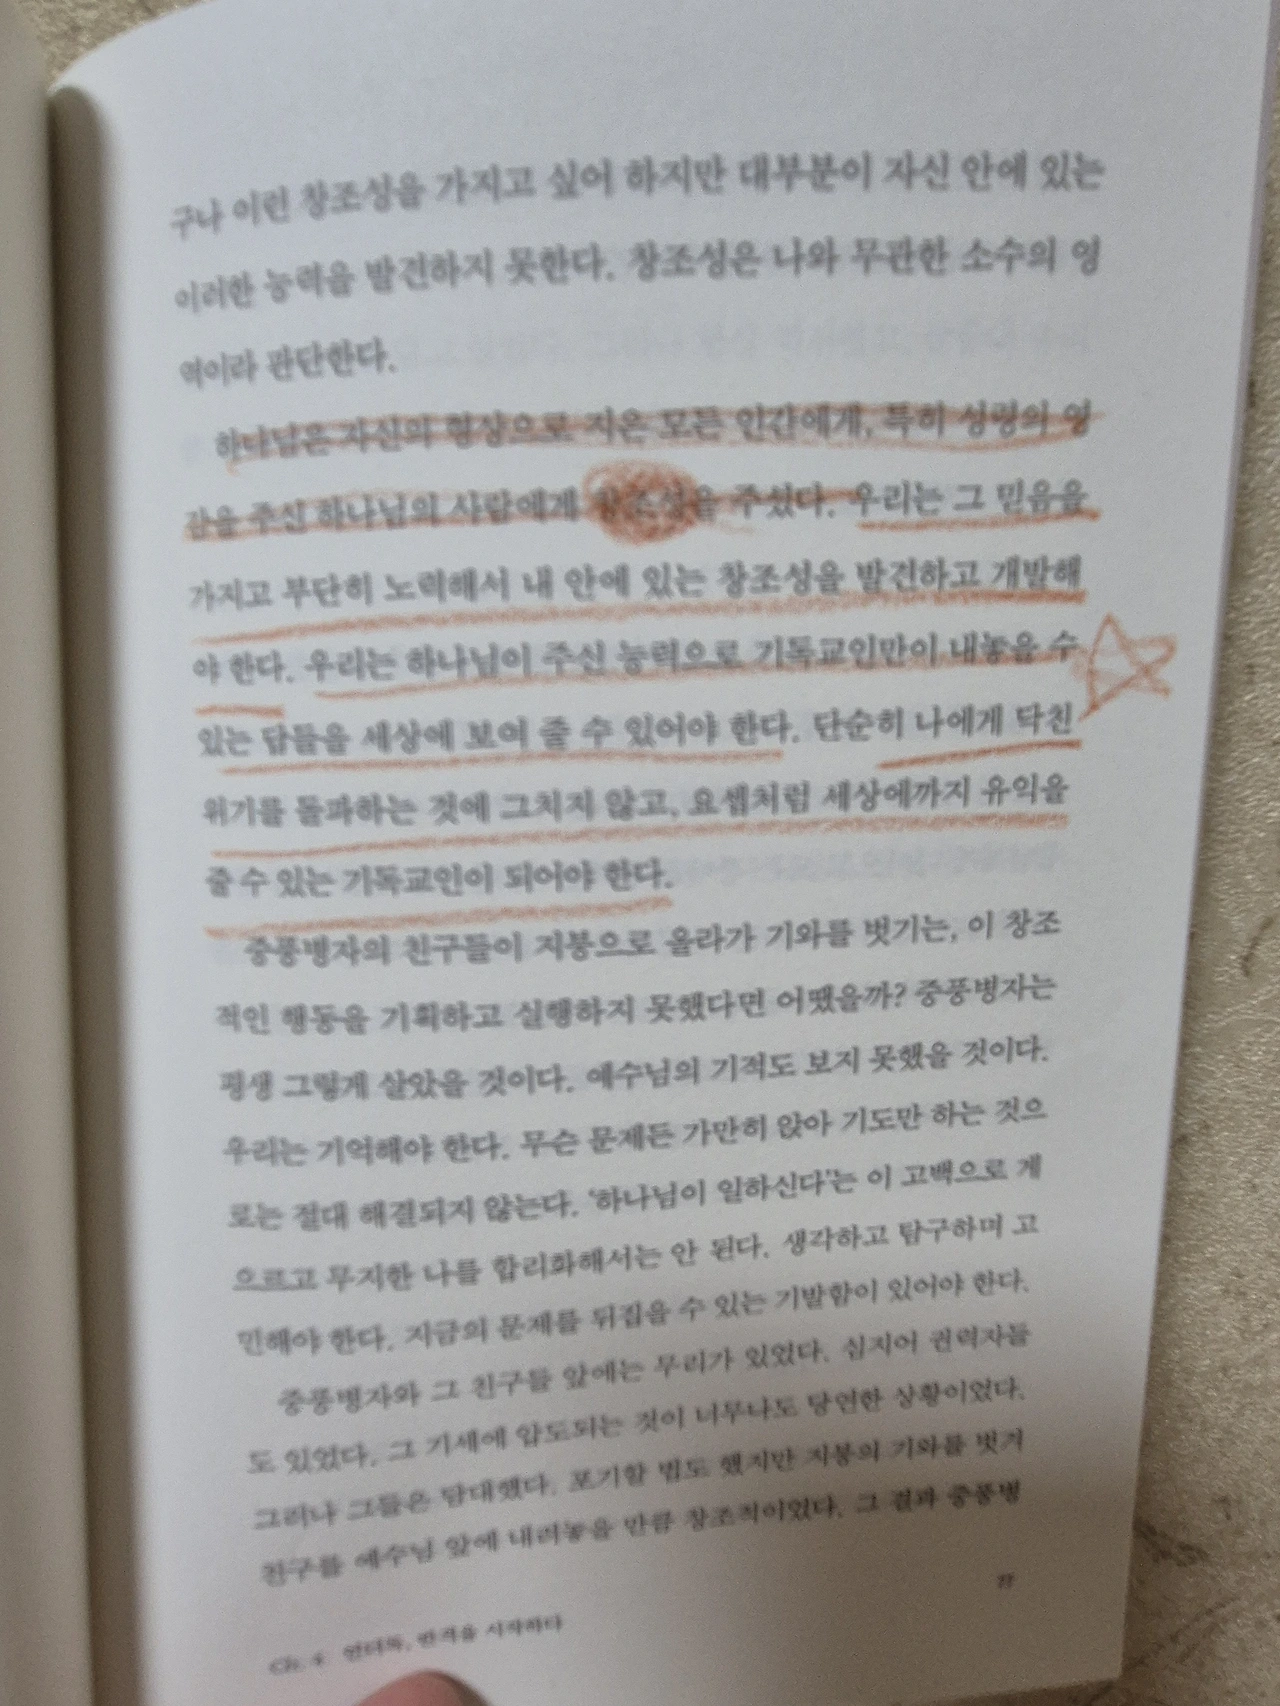 구나 이런 창조성을 가지고 싶어 하지만 대부분이 자신 안에 있는
이러한 능력을 발견하지 못한다. 창조성은 나와 무관한 소수의 영
역이라 판단한다.
하나님은 자신의 형상으로 지은 모든 인간에게, 특히 성령의 영
감을 주신 하나님의 사람에게 창조성을 주셨다. 우리는 그 믿음을
가지고 부단히 노력해서 내 안에 있는 창조성을 발견하고 개발해
야 한다. 우리는 하나님이 주신 능력으로 기독교인만이 내놓을 수
있는 답들을 세상에 보여 줄 수 있어야 한다. 단순히 나에게 닥친
위기를 돌파하는 것에 그치지 않고, 요셉처럼 세상에까지 유익을
줄 수 있는 기독교인이 되어야 한다.
중풍병자의 친구들이 지붕으로 올라가 기와를 벗기는, 이 창조
적인 행동을 기획하고 실행하지 못했다면 어땠을까? 중풍병자는
평생 그렇게 살았을 것이다. 예수님의 기적도 보지 못했을 것이다.
우리는 기억해야 한다. 무슨 문제든 가만히 앉아 기도만 하는 것으
로는 절대 해결되지 않는다. '하나님이 일하신다'는 이 고백으로 게
으르고 무지한 나를 합리화해서는 안 된다. 생각하고 탐구하며 고
민해야 한다. 지금의 문제를 뒤집을 수 있는 기발함이 있어야 한다.
중풍병자와 그 친구들 앞에는 무리가 있었다. 심지어 권력자들
도 있었다. 그 기세에 압도되는 것이 너무나도 당연한 상황이었다.
그러나 그들은 담대했다. 포기할 법도 했지만 지붕의 기와를 벗겨
친구를 예수님 앞에 내려놓을 만큼 창조적이었다. 그 결과 중풍병
Ch. 4 언더독, 반격을 시작하다